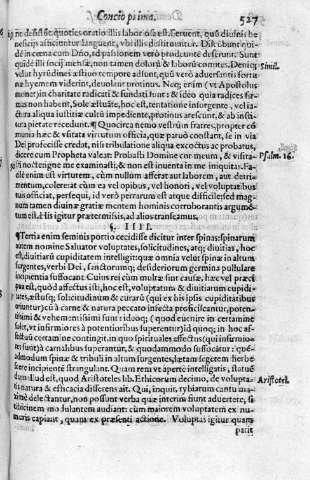 Concio prima. 527
nesciis incitentur languent, vbi illis destituuntur. Discubunt qui-
dem in cœna cum Dño, ad passionem verò prodeunte deserunt. Sunt
quidē illi socij mensæ, non tamen doloris & laboris comites. Deniq; Simil.
vt hyrudines æstiuo tempore adsunt, quū verò aduersantis fortu-
næ hyemem viderint, deuolant protinus. Neq; enim (vt Apostolus
monet) in charitate radicati & fundati sunt: & ideo quia radices fir-
mas non habent, Sole æstuāte, hoc est, tentatione insurgente, vel ia-
ctura aliqua iustitiæ cultū impediente, protinus arescunt, & ab institu-
ta pietate recedunt. ¶ Quocirca nemo vestrū fratres, propter cō
munia hæc & vsitata virtutum officia, quæ paruò constant, se in via
Dei profecisse credat, nisi tribulatione aliqua excoctus ac probatus,
dicere cum Propheta valeat: Probasti Domine cor meum, & visita- Psalm. 16.
sti nocte: igne me examinasti, & non est inuenta in me iniquitas. Fa-
cilè enim est virtutem, cùm nullum afferat aut laborem, aut detri-
mentum, colere: at cùm ea vel opibus, vel honori, vel voluptatibus
tuis officiat, persequi, id verò perrarum est atque difficile: sed mag-
num tamen diuinæ gratiæ mentem hominis corroborantis argumē-
tum est. His igitur prætermissis, ad alios transeamus.
§. IIII.
¶ Tertia enim seminis portio cecidisse dicitur inter spinas: spinarum
autem nomine Saluator voluptates, solicitudines, atq; diuitias, hoc
est, diuitiarū cupiditatem intelligit: quæ omnia velut spinæ in altum
surgentes, verbi Dei, sanctorumq; desideriorum germina pullulare
incipientia suffocant. Cuius rei cùm multæ sint causæ, hæc vel præci
pua est, quòd affectus isti, hoc est, voluptatum & diuitiarum cupidi-
tates, æstusq; solicitudinum & curarū (qui ex his ipsis cupiditatibus
oriuntur) cū à carne & natura peccato infecta proficiscantur, poten-
tissimi & vehementissimi sunt: ideoq; (quod euenire in certamine
solet, vt infirmiores à potentioribus superentur) id quinq; in hoc af-
fectuū certamine contingit: in quo spirituales affectus (qui infirmio-
res sunt) à carnalibus superantur, & quodammodo suffocātur: quē-
admodum spinæ & tribuli in altum surgentes, lætam segetem in her-
bescere incipiente strangulant. Quam rem vt apertè intelligatis, statuē
dum illud est, quod Aristoteles lib. Ethicorum decimo, de volupta- Aristotel.
tis natura & efficacia disserens ait. Qui, inquit, tybiarum cantu ma-
ximè delectantur, non possunt verba quæ interim fiunt aduertere, si
tibicinem modulantem audiant: cùm maiorem voluptatem ex nu-
meris capiant, quàm ex præsenti actione. Voluptas igitur quam
parit